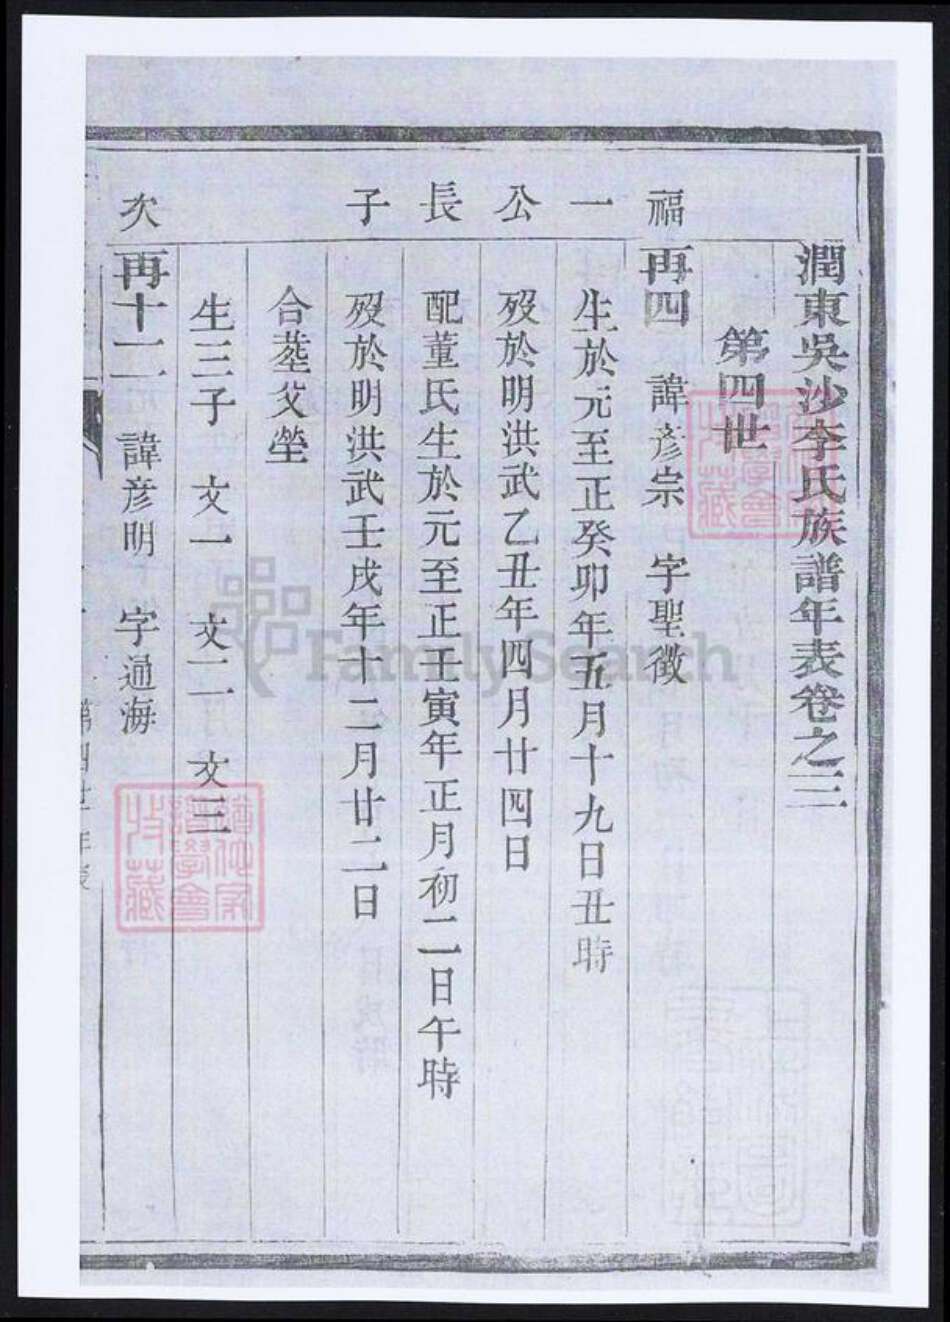 潤東吳沙李氏族譜年表卷之三
第四世
福 再四 諱彦宗 字聖徵
一 生於元至正癸卯年五月十九日丑時
公 歿於明洪武乙丑年四月廿四日
長 配董氏生於元至正壬寅年正月初二日午時
子 歿於明洪武壬戌年十二月廿二日
合塟父塋
生三子 文一 文二 文三
次 再十二 諱彦明 字通海
第四世年表
FamilySearch